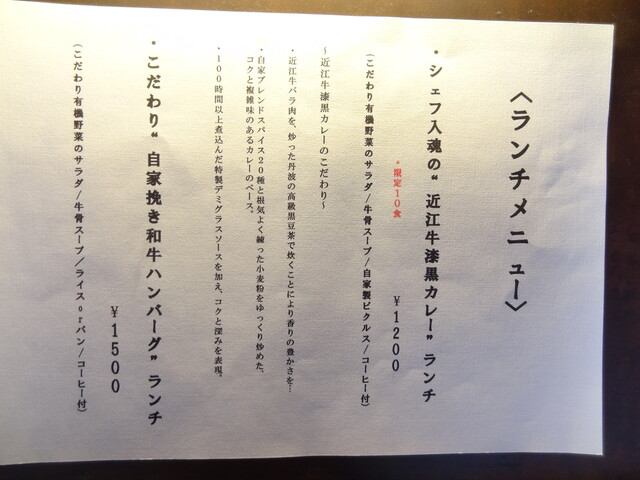 〈ランチメニュー〉
・シェフ入魂の“近江牛漆黒カレー”ランチ
・限定10食
¥1200
（こだわり有機野菜のサラダ/牛骨スープ/自家製ピクルス/コーヒー付）
～近江牛漆黒カレーのこだわり～
・近江牛バラ肉を、炒った丹波の高級黒豆茶で炊くことにより香りの豊かさを…
・自家ブレンドスパイス20種と根気よく練った小麦粉をゆっくり炒めた、
コクと複雑味のあるカレーのベース。
・100時間以上煮込んだ特製デミグラスソースを加え、コクと深みを表現。
・こだわり“自家挽き和牛ハンバーグ”ランチ
¥1500
（こだわり有機野菜のサラダ/牛骨スープ/ライスorパン/コーヒー付）